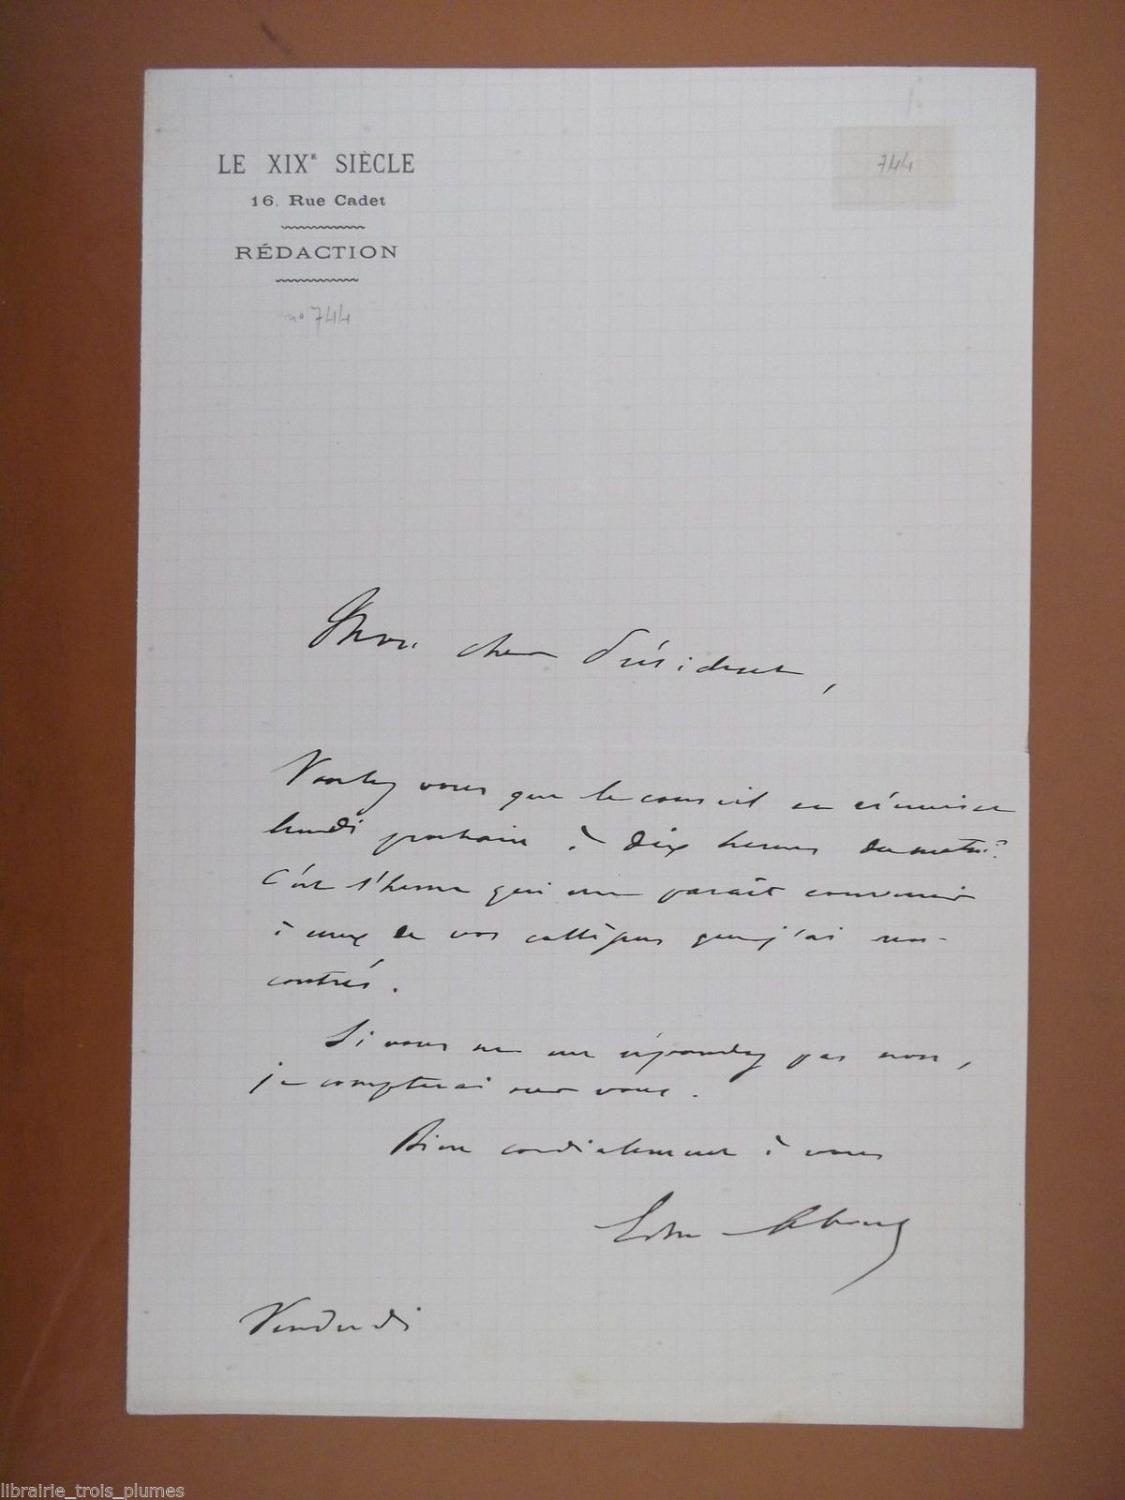 LE XIXᴱ SIÈCLE
744
16, Rue Cadet
RÉDACTION
nº 744
Mon cher Président,
Voulez vous que le conseil se réunisse
lundi prochain à dix heures du matin?
C'est l'heure qui me paraît convenir
à ceux de vos collègues que j'ai ren-
contrés.
Si vous ne me répondez pas non,
je compterai sur vous.
Bien cordialement à vous
Edm About
Vendredi
librairie_trois_plumes